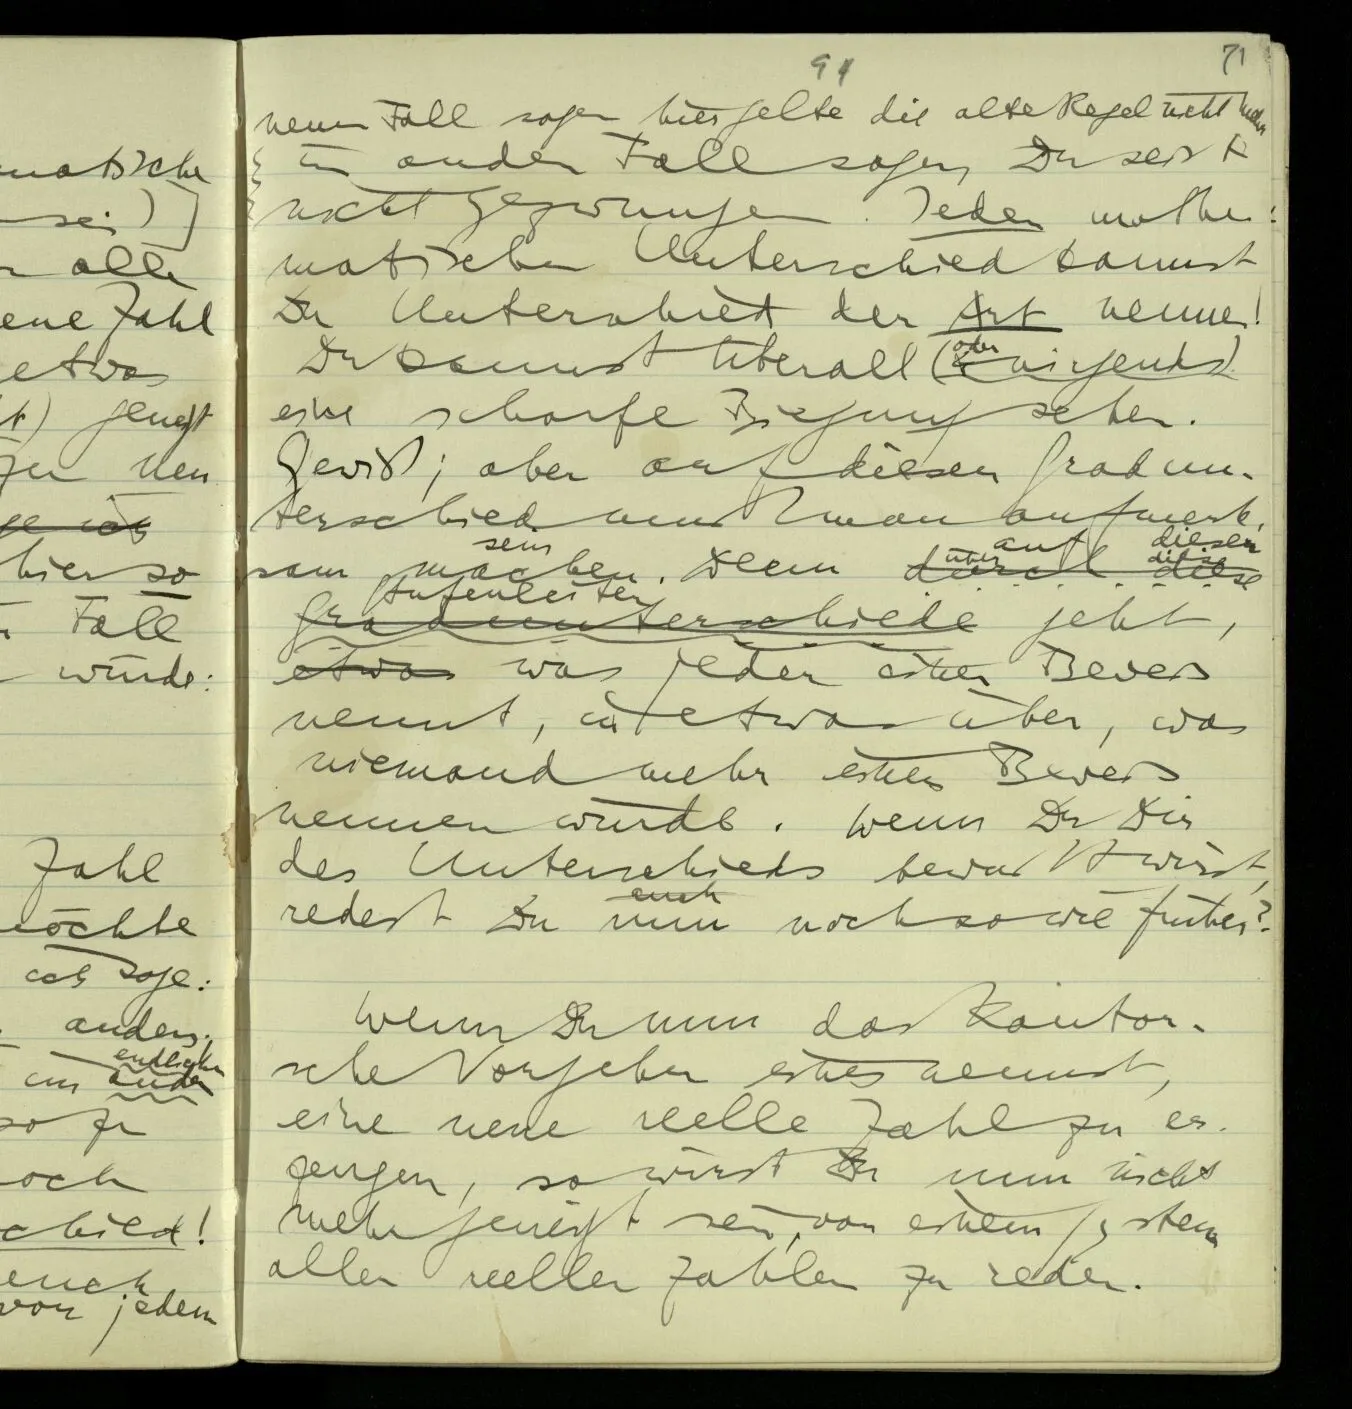 matische
sei)]
alle
eue Zahl
etwas
t) geneigt
zu nen
ge ich
hier so
Fall
würde:
Zahl
möchte
ich sage:
anders.
endlichen
um ander
so zu
noch
schied!
euch
von jedem
94
71
neuen Fall sagen hier gelte die alte Regel nicht mehr
im andern Fall sagen, Du seist
nicht gezwungen. Jeden mathe-
matischen Unterschied kannst
Du Unterschied der Art nennen!
Du kannst überall (oder nirgends)
eine scharfe Biegung sehen.
Gewiß; aber auf diesen Gradun-
terschied muß man aufmerk-
sam machen. Denn durch diese
sein
über auf diese diesen
Stufenleiter
Gradunterschiede geht,
etwas was jeder einen Beweis
nennt, in etwas über, was
niemand mehr einen Beweis
nennen würde. Wenn Du Dir
des Unterschieds bewußt wirst,
redest Du nun noch so wie früher?
auch
Wenn Du nun das Kantor-
sche Vorgehen eines nennst,
eine neue reelle Zahl zu er-
zeugen, so wirst Du nun nicht
mehr geneigt sein, von einem System
aller reellen Zahlen zu reden.